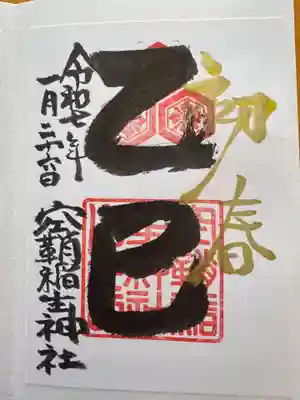 初春
乙巳
令和七年
一月二十六日
穴鞴稲生神社